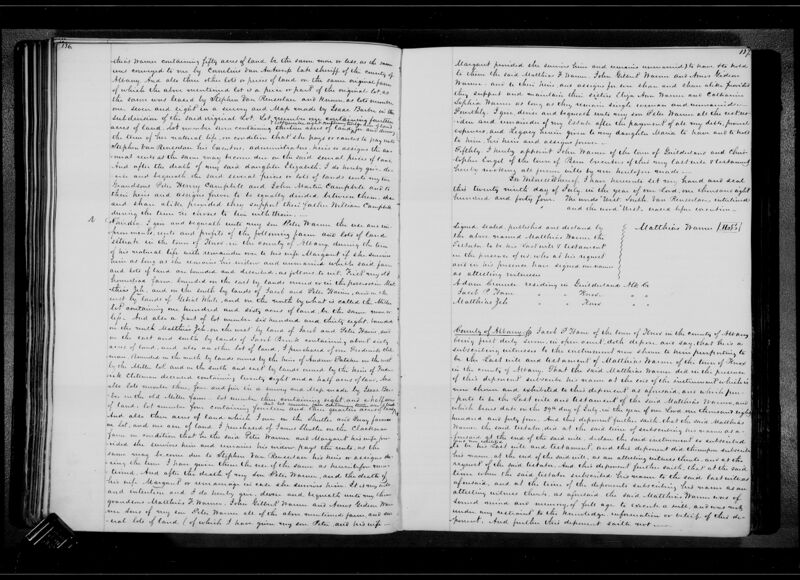 136
thias Warner containing fifty acres of land be the same more or less as the same
was conveyed to me by Cornelius Van Antwerp late sheriff of the county of
Albany. And also three other lots or pieces of land in the same original farm
of which the above mentioned lot is a piece or part of the original lot as
the same was leased by Stephen Van Rensselaer and known as lots number
one seven and eight in a survey and Map made by Isaac Barber on the
subdivision of the said original lot. Lot number one containing fourteen
acres of land. Lot number seven containing thirteen acres of land, for and during
the term of her natural life, on condition that she pays or causes to pay unto
Stephen Van Rensselaer his Executors, administrators heirs or assigns the an-
nual rents as the same may become due on the said several pieces of land.
And after the death of my said daughter Elizabeth, I do hereby give de-
vise and bequeath the said several pieces or lots of lands unto my two
Grandsons Peter Henry Campbell and John Martin Campbell and to
their heirs and assigns forever to be equally divided between them, share
and share alike provided they support their father William Campbell
during the term he chuses to live with them.
Fourdly. I give and bequeath unto my son Peter Warner the use and im-
provements, rents and profits of the following farm and lots of land
situate in the town of Knox in the county of Albany during the term
of his natural life with remainder over to his wife Margaret if she survives
him as long as she remains his widow and unmarried which said farm
and lots of land are bounded and described as follows to wit. First my old
homestead farm bounded on the east by lands owned or in the possession Mat-
thias Joh, and on the south by lands of Jacob and Peter Haines, and on the
west by lands of Gebial White, and on the north by what is called the Miller
lot containing one hundred and sixty acres of land be the same more or
less. And also a part of lot number six hundred and thirty eight, bounded
on the north Matthias Joh, on the west by land of Jacob and Peter Haines, and
on the east and south by lands of Jacob containing about sixty
acres of land, and also another lot of land I purchased of one Frederick Ald-
man Bounded on the north by lands owned by the heirs of Andrew on the west
by the Miller lot and on the south and east by lands owned by the heirs of Frede-
rick containing twenty eight and a half acres of land. And
also lots number three four and five in a survey and Map made by Isaac Bar-
ber in the old Miller farm lot number three containing eight and a half acres
of land, lot number four containing fourteen and three quarter acres of land
And also three acres of land which I own in the Shutler and farm
on lot, and one acre of land I purchased of James Shutler on the
farm on condition that he the said Peter Warner and Margaret his wife pro-
vided she survives him and remains his widow pays the rents as the
same may become due to Stephen Van Rensselaer his heirs or assigns du-
ring the term I have given them the use of the same as heretofore men-
tioned. And after the death of my son Peter Warner, and the death of
his wife Margaret or remarriage in case she survives him. It is my will
and intention and I do hereby give devise and bequeath unto my three
grandsons Matthias F. Warner John Gilbert Warner and Amos Gideon War-
ner sons of my son Peter Warner all of the above mentioned farm and sev-
eral lots of land (of which I have given my son Peter and his wife
137
Margaret provided she survives him and remains unmarried) to have & to hold
to them the said Matthias F. Warner John Gilbert Warner and Amos Gideon
Warner and to their heirs and assigns forever share and share alike, provided
they support and maintain their sisters Eliza Ann Warner and Catharine
Sophia Warner as long as they remain single women and unmarried.
Fourthly. I give devise and bequeath unto my son Peter Warner all the rest res-
idue and remainder of my estate after the payment of all my debts, funeral
expenses, and Legacy herein given to my daughter Maria to have and to hold
to him his heirs and assigns forever.
Fifthly I hereby appoint John Warner of the town of Guilderland and Chris-
topher Engel of the town of Bern Executors of this my last will & testament
hereby revoking all former wills by me heretofore made.
In Witness Whereof I have hereunto set my hand and seal
this twenty ninth day of July in the year of our Lord one thousand eight
hundred and forty four. The words Van Rensselaer, interlined
and the word West, erased before execution.
Signed sealed published and declared by
the above named Matthias Warner the
Testator to be his last will & testament
in the presence of us, who at his request
and in his presence have signed our names
as attesting witnesses
Matthias Warner [L.S.]
Adam residing in Guilderland Alb. Co
Jacob P. Hane " " Knox "
Matthias Joh " " Knox "
County of Albany ss Jacob P. Hane of the town of Knox in the county of Albany
being first duly sworn, in open court, doth depose and say, that he is a
subscribing witness to the instrument now shown to him purporting to
be the Last will and testament of Matthias Warner of the town of Knox
in the county of Albany. That the said Matthias Warner did in the presence
of this deponent subscribe his name at the end of the instrument which is
now shown and exhibited to this deponent as aforesaid, and which pur-
ports to be the Last will and testament of the said Matthias Warner, and
which bears date on the 29th day of July in the year of our Lord one thousand eight
hundred and forty four. And this deponent further saith, that the said Matthias
Warner the said testator did at the said time of subscribing his name as a-
foresaid at the end of the said will, declare the said instrument so subscribed
to be his Last will and testament; and this deponent did thereupon subscribe
his name at the end of the said will, as an attesting witness thereto, and at the
request of the said testator. And this deponent further saith, that at the said
time when the said testator subscribed his name to the said Last will as
aforesaid, and at the time of the deponents subscribing his name as an
attesting witness thereto, as aforesaid the said Matthias Warner was of
sound mind and memory, of full age to execute a will, and was not
under any restraint to the knowledge, information or belief of this de-
ponent. And further this deponent saith not.